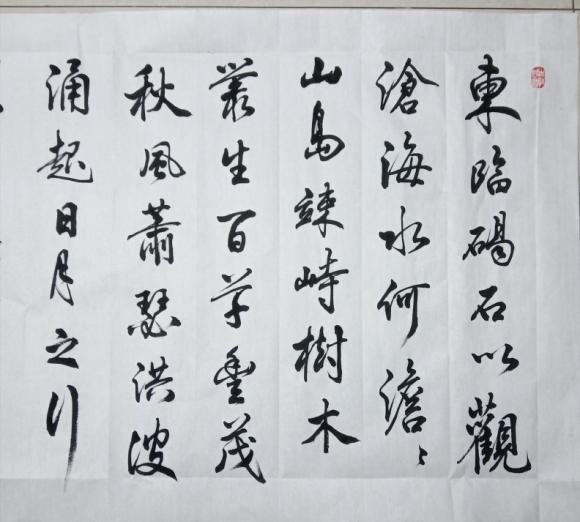 東臨碣石以觀
滄海水何澹〻
山島竦峙樹木
叢生百草豐茂
秋風蕭瑟洪波
涌起日月之行